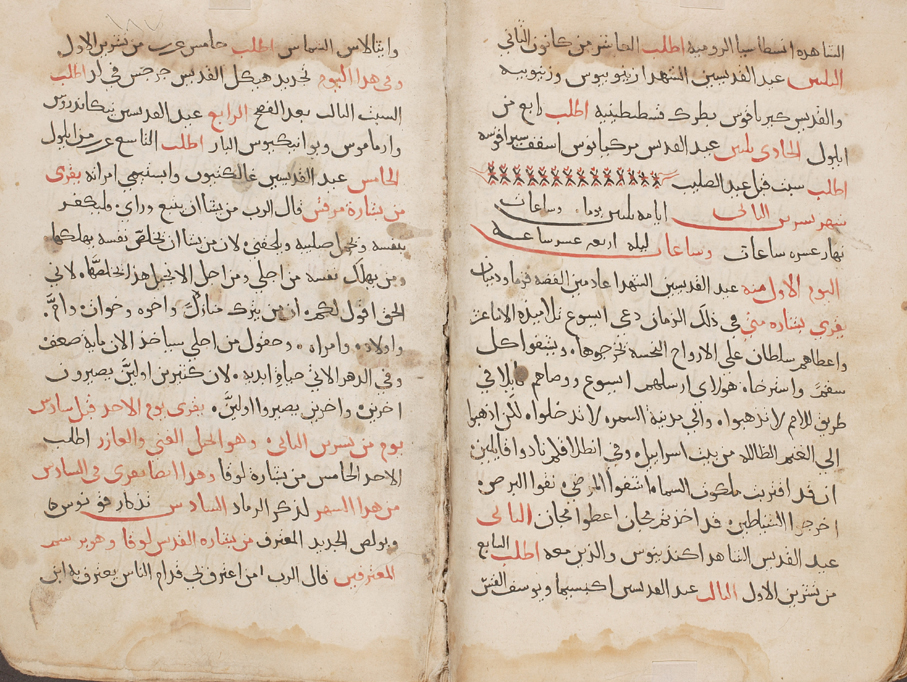 الشاهده انسطاسيا الروميه اطلب العاشر من كانون الثاني
الثلثين عيد القديسين الشهدا زينوبيوس وزنوبيه
والقديس كيرياقوس بطرك قسطنطينيه اطلب رابع من
ايلول الحادي ثلثين عيد القديس مركيانوس اسقف سيراقوسه
اطلب سبت قبل عيد الصليب
شهر تسرين الثاني ايامه ثلثين يوما وساعات
نهار عسره ساعات وساعات ليله اربع عسر ساعه
اليوم الاول منه عيد القديسين الشهدا عادمين الفضه قزما ودميان
يقرى بشاره متى في ذلك الزمان دعى ايسوع تلاميذه الاثناعشر
واعطاهم سلطان على الارواح النجسه تخرجوها ويشفوا كل
سقم واسترخاه هولاي ارسلهم ايسوع ووصاهم قايلا في
طريق للامم لا تذهبوا والي مدينة السمره لا تدخلوا لكن اذهبوا
الي الغنم الظاله من بيت اسراييل وفي انطلاقكم نادوا قايلين
ان قد اقتربت ملكوت السما اشفوا المرضى نقوا البرص
اخرجوا الشياطين قد اخذتم مجان اعطوا مجان الثاني
عيد القديس الشاهد اكنذينوس والذين معه اطلب التابع
من تشرين الاول الثالث عيد القديسين اكبسيما ويوسف القس
وايثالاس الشماس اطلب خامس عسر من تشرين الاول
وفي هذا اليوم تجديد هيكل القديس جرجس في لد اطلب
السبت الثالث بعد الفصح الرابع عيد القديسين نيكاندروس
وارماوس ويوانيكيوس البار اطلب التاسع عسر من ايلول
الخامس عيد القديسين غالكتيون وابستيمي امراته يقرى
من بشارة مرقس قال الرب من يشا ان يتبع وراي فليكفر
بنفسه ويحمل صليبه ويلحقني لان من يشا ان يخلص نفسه يهلكها
ومن يهلك نفسه من اجلي ومن اجل الانجيل هذا يخلصها لاني
الحق اقول لكم ان من يترك منازل واخوه وخوات واب
واولاد وامراه وحقول من اجلي سياخذ الان ماية ضعف
وفي الدهر الاتي حياة ابديه لان كثيرين اولين يصيرون
اخرين واخرين يصيروا اولين يقرى يوم الاحد قبل سادس
يوم من تسرين الثاني وهو انجيل الغني والعازر اطلب
الاحد الخامس من بشارة لوقا وهذا ايضا يقرى في السادس
من هذا الشهر لذكر الرماد السادس تذكار
وبولص الجديد المعترف من بشاره القديس لوقا
المعترفين قال الرب من اعترف بي قدام الناس يعترف به ابن